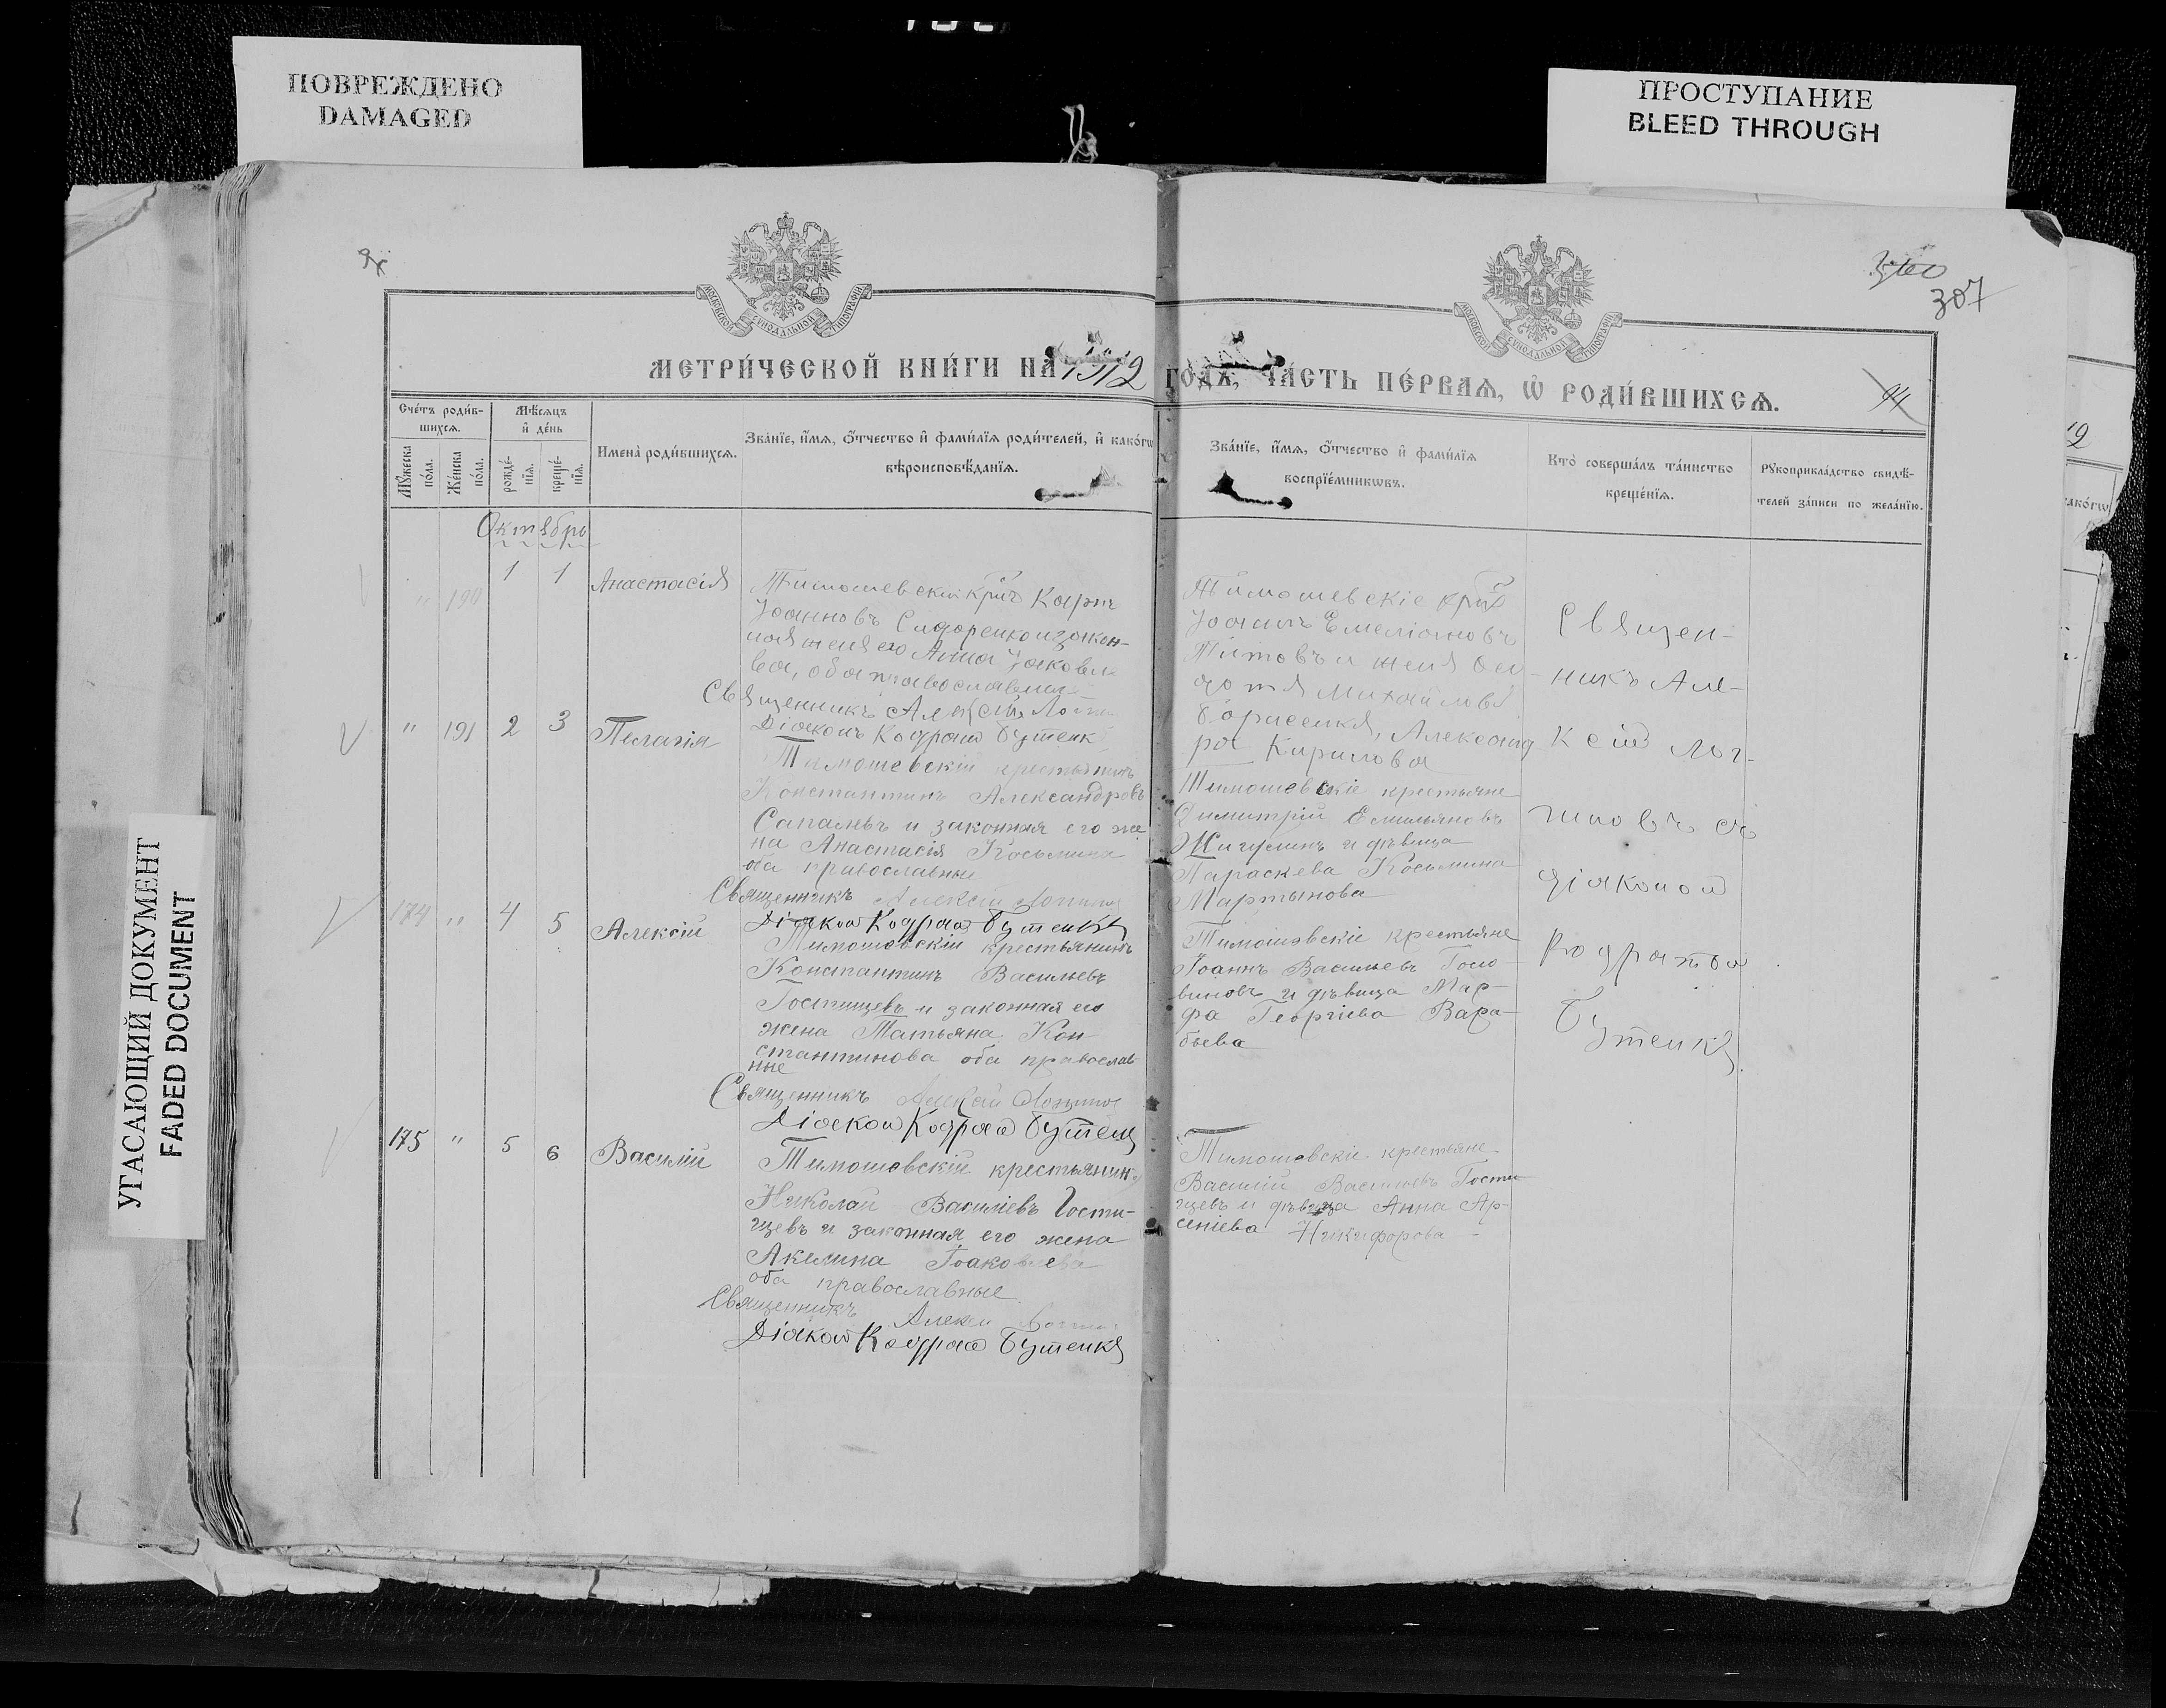 ПОВРЕЖДЕНО
DAMAGED
ПРОСТУПАНИЕ
BLEED THROUGH
УГАСАЮЩИЙ ДОКУМЕНТ
FADED DOCUMENT
307
МОСКОВСКОЙ СѴНОДАЛЬНОЙ ТИПОГРАФІИ
МОСКОВСКОЙ СѴНОДАЛЬНОЙ ТИПОГРАФІИ
МЕТРИ́ЧЕСКОЙ КНИ́ГИ НА 1912 ГОДЪ, ЧА́СТЬ ПЕ́РВАѦ, Ѽ РОДИ́ВШИХСѦ.
94
Сче́тъ роди́в-
шихсѧ.
Мꙋжеска по́ла.
Же́нска по́ла.
Мѣ́сѧцъ
и҆ де́нь
рожде́-
нїѧ.
креще́-
нїѧ.
И҆мена̀ роди́вшихсѧ.
Зва́нїе, и҆́мѧ, ѻ҆́тчество и҆ фами́лїѧ роди́телей, и҆ како́гѡ
вѣроисповѣ́данїѧ.
Зва́нїе, и҆́мѧ, ѻ҆́тчество и҆ фами́лїѧ
воспрїе́мникѡвъ.
Кто̀ соверша́лъ та́инство
креще́нїѧ.
Рꙋкоприкла́дство свидѣ́-
телей за́писи по жела́нїю.
Октябрь
" 190 1 1 Анастасія
Тимошевскій Карпъ
Іоанновъ Сидоренко и закон-
ная жена его Анна Іаковле
ва, оба православные
Священникъ Алексій
Діаконъ Кодратъ Бутенк
Тимошевскіе
Іоаннъ Емеліановъ
Титовъ и жена
Михайлова
Борисенкя, Александ
ра Кирилова
Священ-
никъ Але-
ксій Лог-
гиновъ съ
діаконом
Кодратом
Бутенкя
" 191 2 3 Пелагія
Тимошевскій крестьянинъ
Константинъ Александровъ
Сапалевъ и законная его же
на Анастасія Косьмина
оба православные
Священникъ Алексій
Діакон Кодрат Бутенкя
Тимошевскіе крестьяне
Димитрій Емильяновъ
Жигулинъ и дѣвица
Параскева Косьмина
Мартынова
174 " 4 5 Алексій
Тимошевскій крестьянинъ
Константинъ Васильевъ
Гостищевъ и законная его
жена Татьяна Кон
стантинова оба православ
ные
Священникъ Алексій
Діакон Кодрат Бутенк
Тимошевскіе крестьяне
Іоаннъ Васильевъ Голо
виновъ и дѣвица Мар-
фа Георгіева Вара
бьева
175 " 5 6 Василій
Тимошевскій крестьянинъ
Николай Василіевъ Гости-
щевъ и законная его жена
Акилина Іаковлева
оба православные
Священникъ Алексій
Діакон Кодрат Бутенкя
Тимошевскіе крестьяне
Василій Васильевъ Гости
щевъ и дѣвица Анна Ар-
сеніева Никифорова